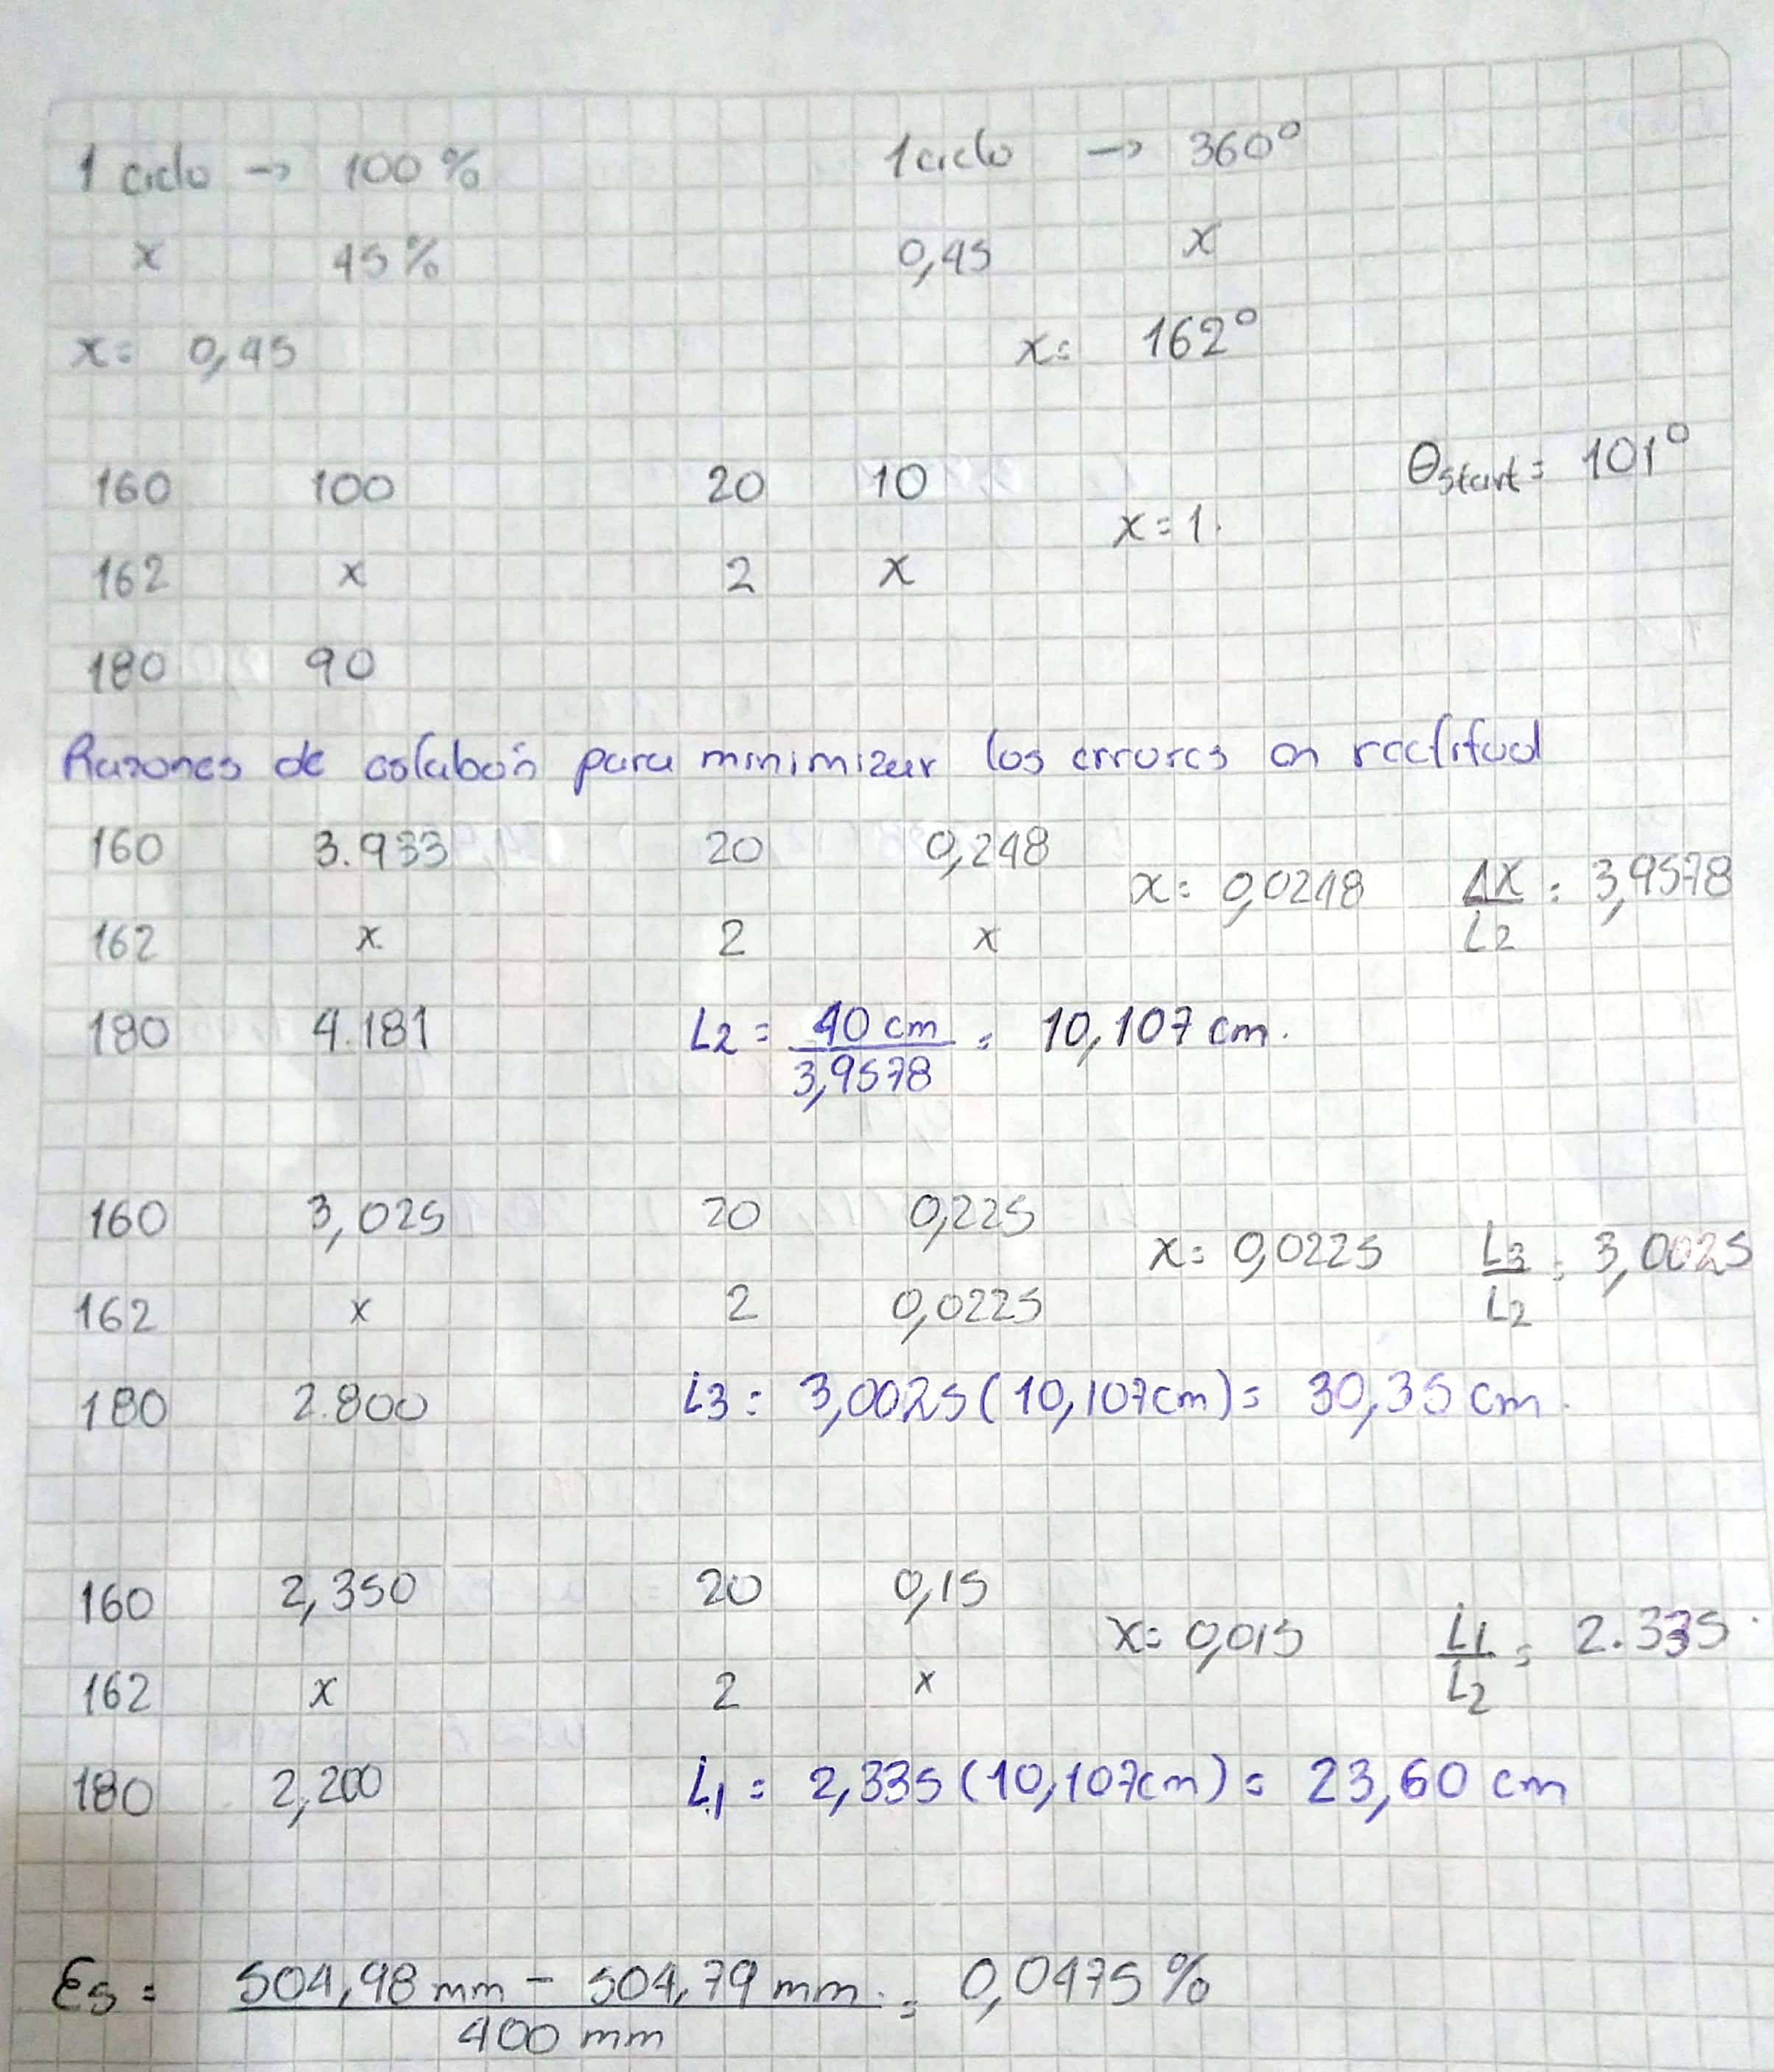 1 ciclo → 100 % 1 ciclo → 360°
x 45 % 0,45 x
x = 0,45 x = 162°
160 100 20 10 θstart = 101°
162 x 2 x x = 1.
180 90
Razones de eslabón para minimizar los errores en rectitud
160 3.933 20 0,248 x = 0,0248 ΔX/L2 = 3,9578
162 x 2 x
180 4.181 L2 = 40 cm/3,9578 = 10,107 cm.
160 3,025 20 0,225 x = 0,0225 L3/L2 = 3,0025
162 x 2 0,0225
180 2.800 L3 = 3,0025 (10,107cm) = 30,35 cm.
160 2,350 20 0,15 x = 0,015 L1/L2 = 2.335
162 x 2 x
180 2,200 L1 = 2,335 (10,107cm) = 23,60 cm
Es = 504,98 mm - 504,79 mm./400 mm = 0,0475 %